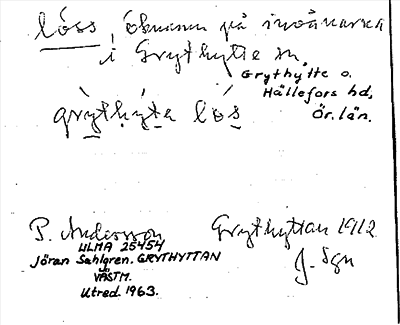 lóss, öknamn på invånarna
i Grythytte sn.
Grythytte o.
Hällefors hd,
Ör. län.
grỳthýta lós
P. Andersson Grythyttan 1912
J. Sgn
ULMA 25454
Jöran Sahlgren. GRYTHYTTAN
VÄSTM.
Utred. 1963.